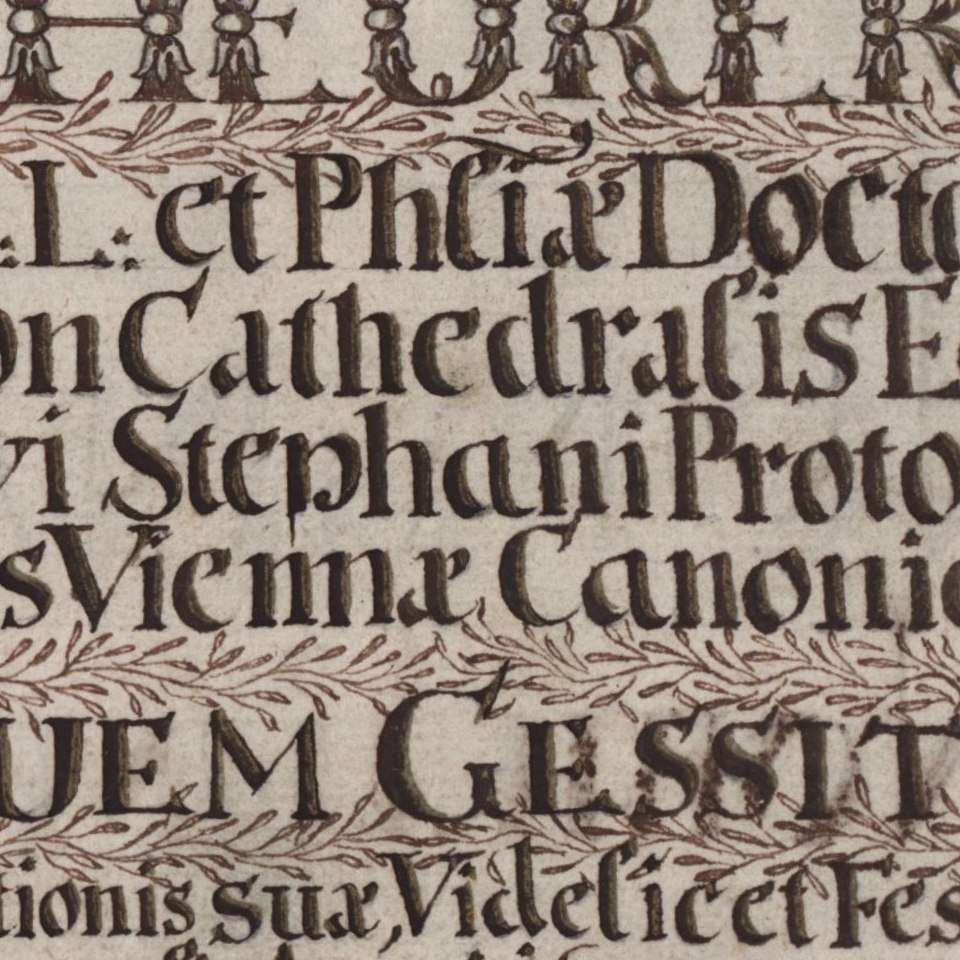 HEURER
.L: et Phliæ Docto
on Cathedralis E
vi Stephani Proto
s Viennæ Canonic
UEM GESSIT
tionis suæ, Videlicet Fes